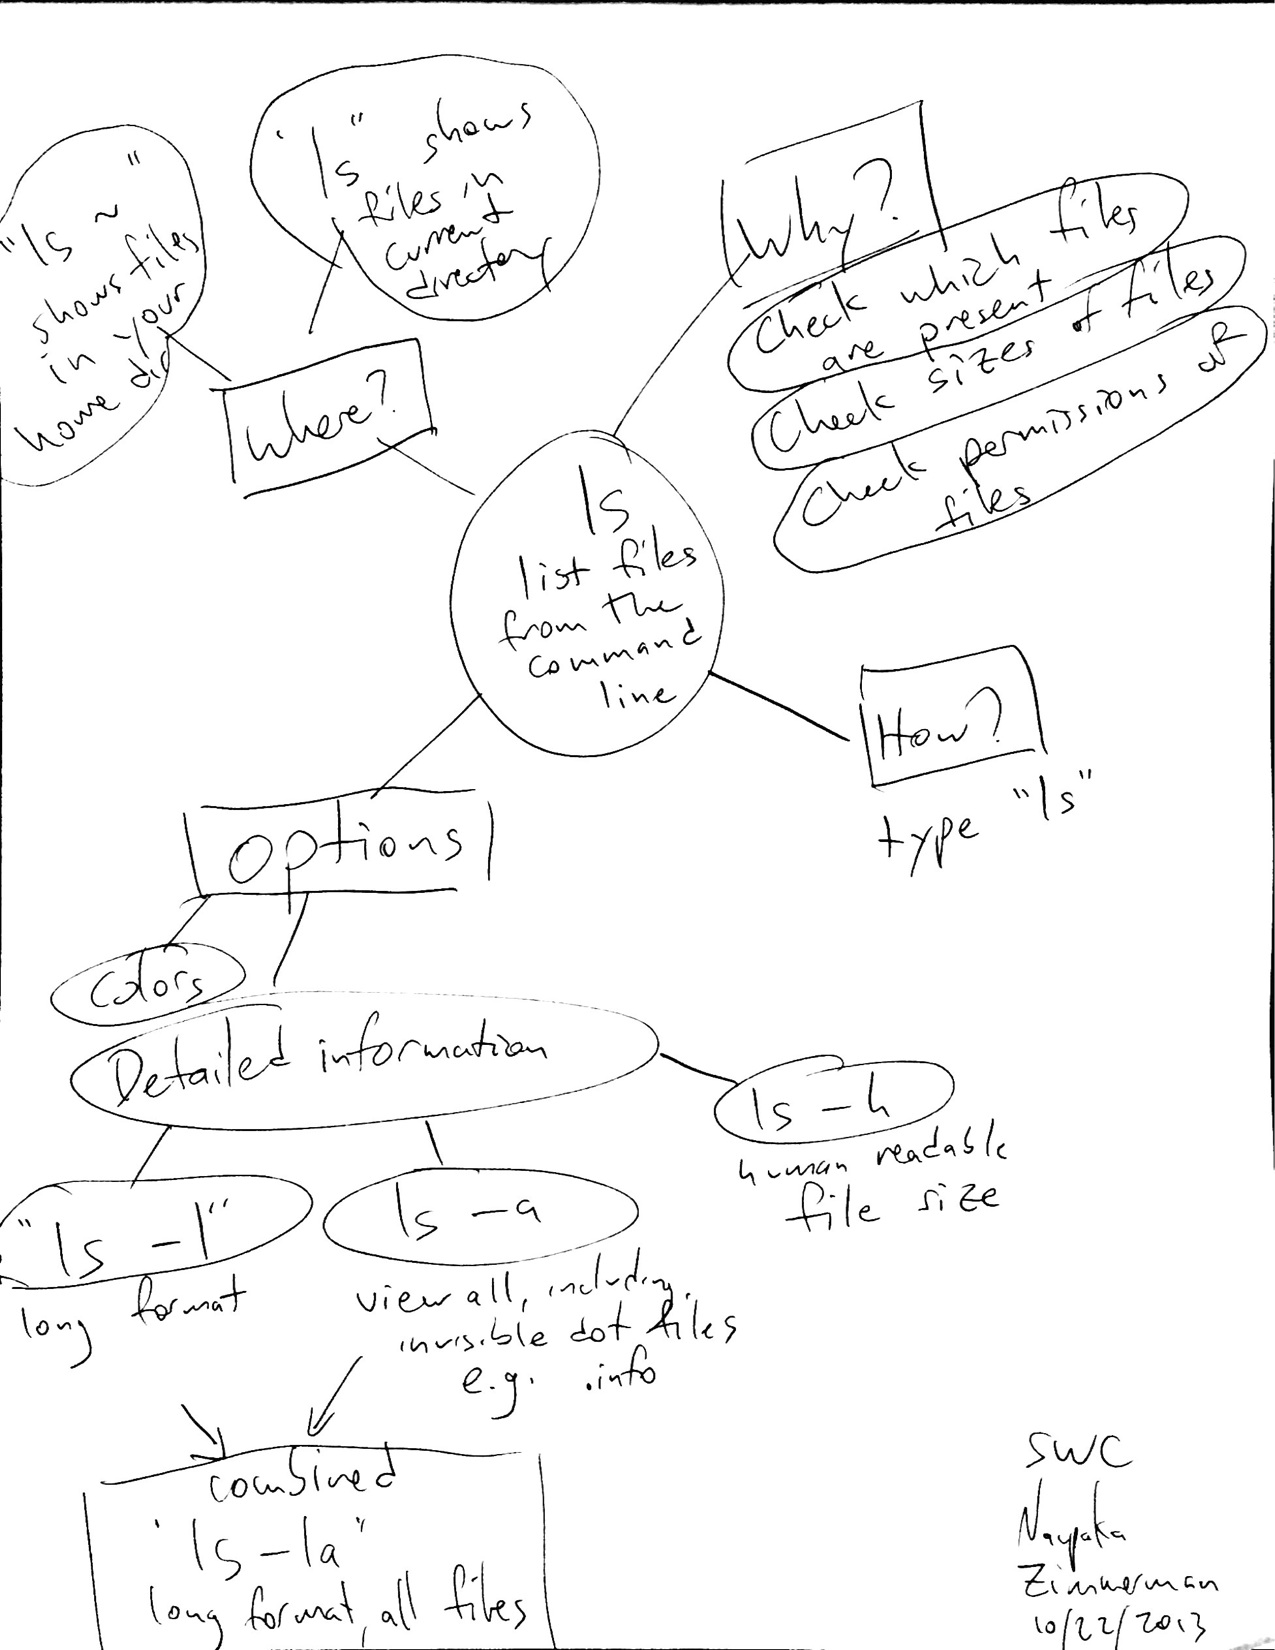 "ls" shows
files in
current
directory
"ls ~"
shows files
in your
home dir
Where?
Why?
Check which files
are present
Check sizes of files
Check permissions of
files
ls
list files
from the
command
line
How?
type "ls"
options
Colors
Detailed information
ls -h
human readable
file size
"ls -l"
long format
ls -a
view all, including
invisible dot files
e.g. .info
combined
"ls -la"
long format, all files
SWC
Naupaka
Zimmerman
10/22/2013